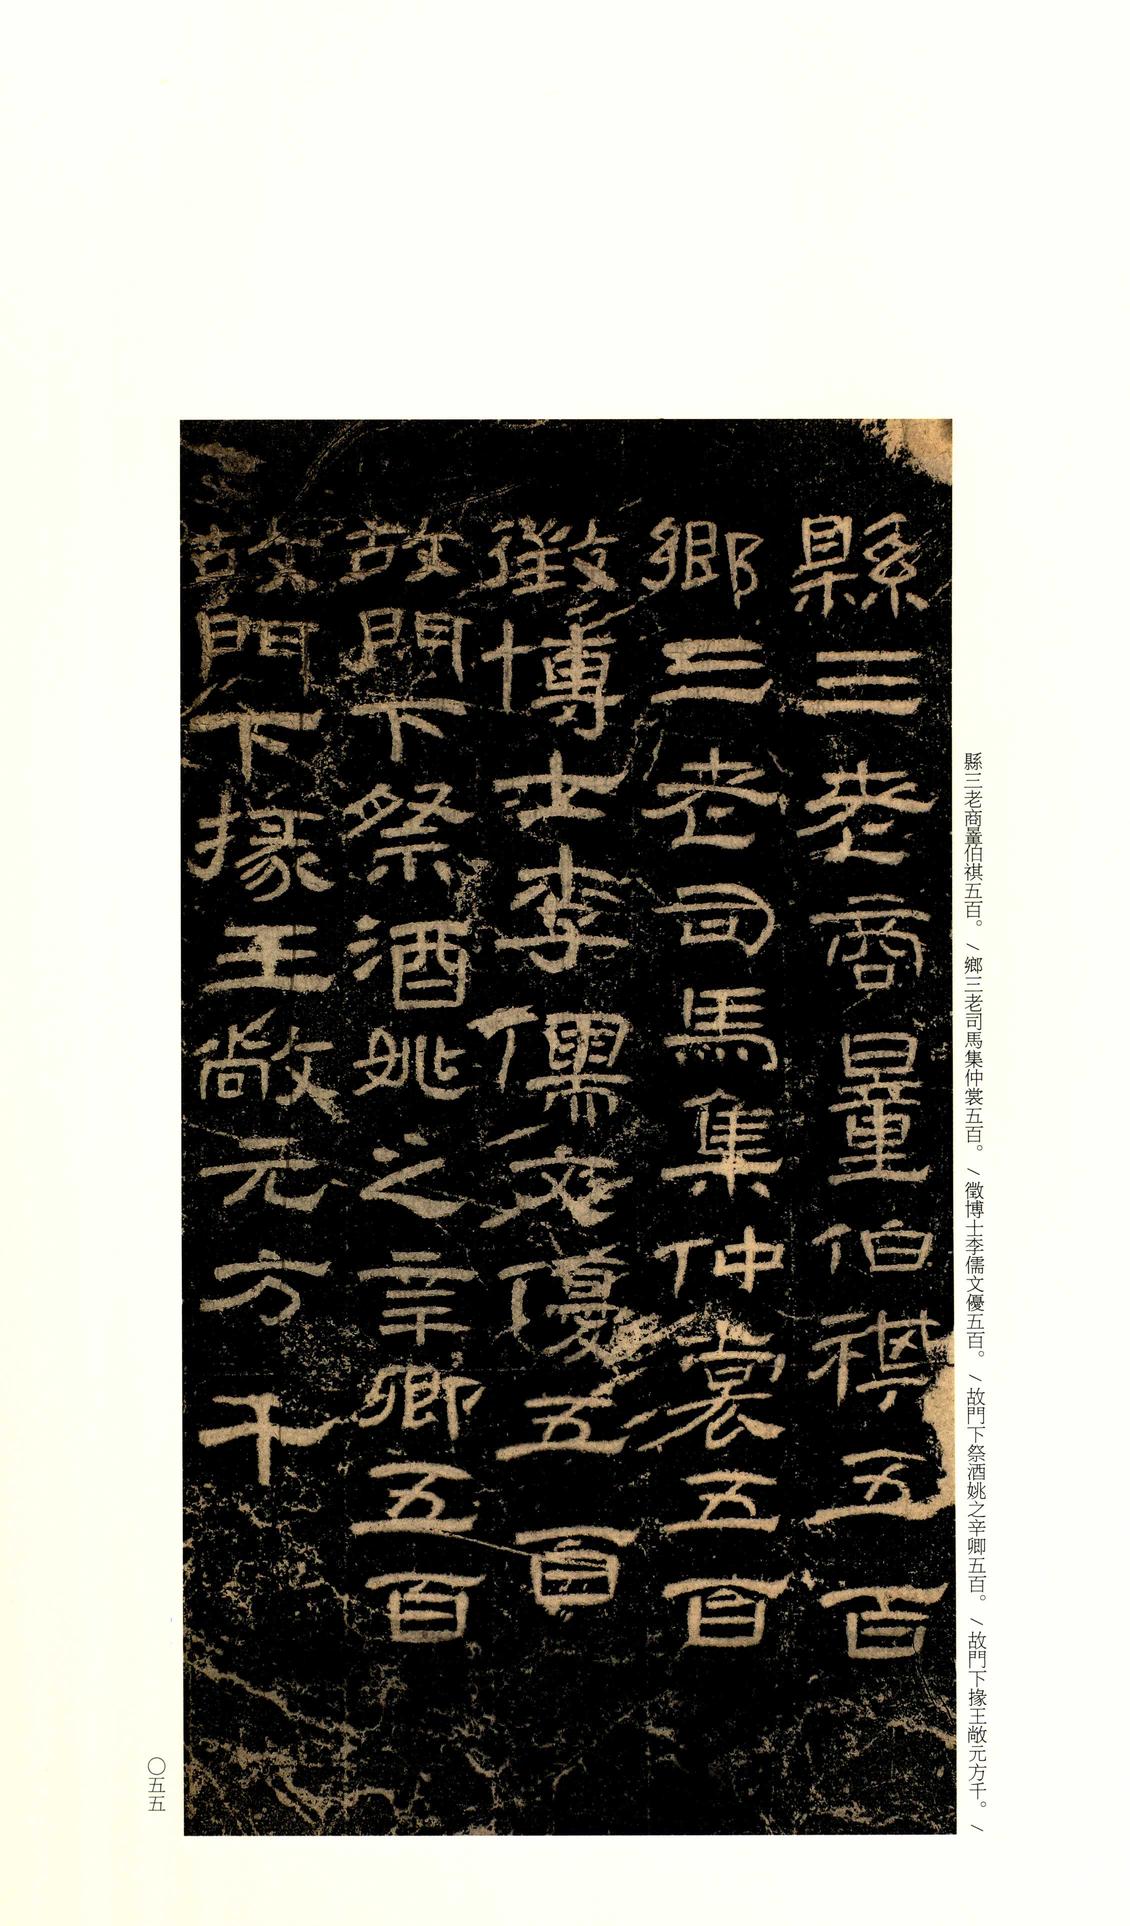 縣三老商量伯祺五百。/鄉三老司馬集仲裳五百。/徵博士李儒文優五百。/故門下祭酒姚之辛卿五百。/故門下掾王敞元方千。/
縣三老商量伯祺五百
鄉三老司馬集仲裳五百
徵博士李儒文優五百
故門下祭酒姚之辛卿五百
故門下掾王敞元方千
〇五五